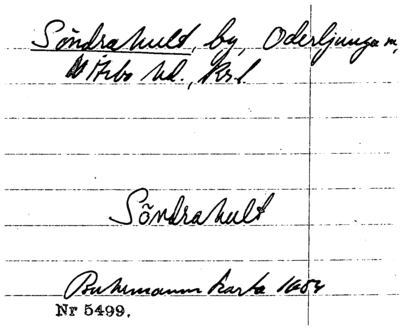 Söndrahult, by, Oderljunga sn,
V Åsbo hd., Kr. l
Söndrahult
Buhrmanns karta 1684
Nr 5499.